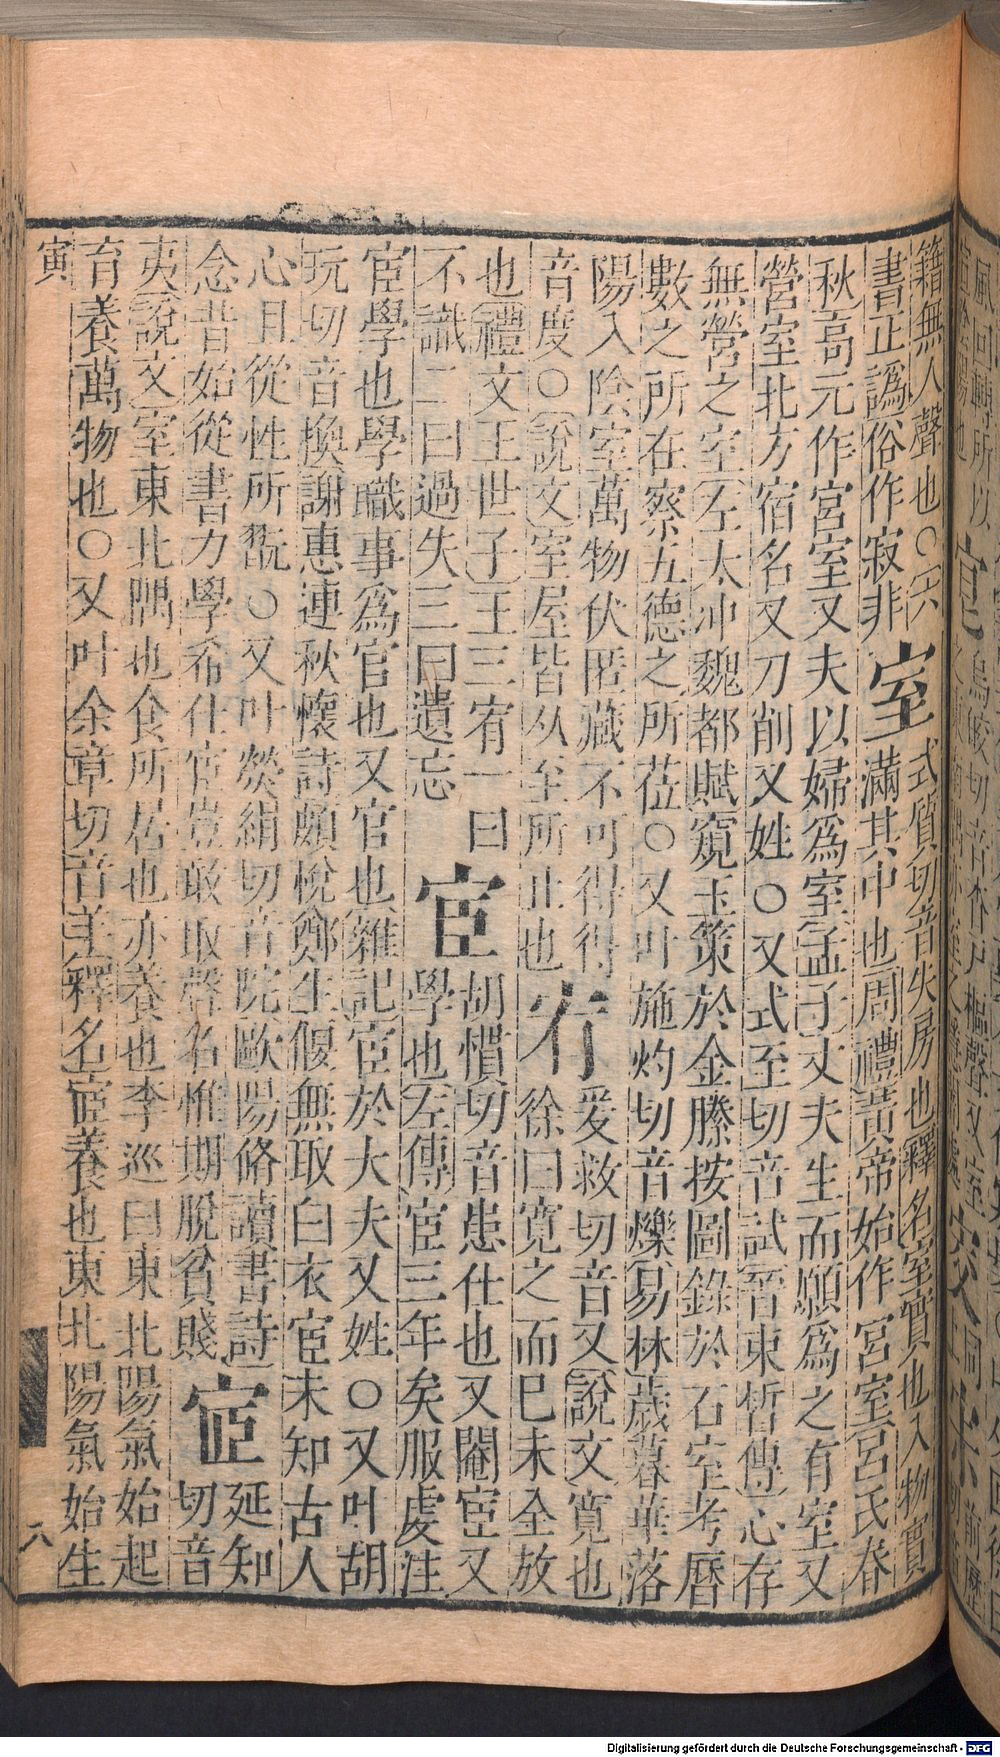 籍無人聲也○〔六
書正譌俗作寂非室式質切音失房也釋名室實也人物實
滿其中也〔周禮黃帝始作宮室呂氏春
秋高元作宮室又夫以婦爲室〔孟子丈夫生而願爲之有室又
營室北方宿名又刀削又姓○又式至切音試〔晉東晳傳心存
無營之室〔左太冲魏都賦窺玉策於金縢按圖錄於石室考曆
數之所在察五德之所蒞○又叶施灼切音爍〔易林歲暮華落
陽入陰室萬物伏匿藏不可得得
音度○〔說文室屋皆从至所止也宥爰救切音又〔說文寬也
徐曰寬之而巳未全放
也〔禮文王世子王三宥一曰
不識二曰過失三曰遺忘宦胡慣切音患仕也又閹宦又
學也〔左傳宦三年矣服虔注
宦學也學職事爲官也又官也〔雜記宦於大夫又姓○又叶胡
玩切音換謝惠連秋懷詩頗悅鄭生偃無取白衣宦未知古人
心且從性所翫○又叶熒絹切音院歐陽脩讀書詩
念昔始從書力學希仕宦豈敢取聲名惟期脫貧賤宧延知
切音
夷〔說文室東北隅也食所居也亦養也李巡曰東北陽氣始起
育養萬物也○又叶余章切音羊釋名宧養也東北陽氣始生
寅
六
Digitalisierung gefördert durch die Deutsche Forschungsgemeinschaft - DFG